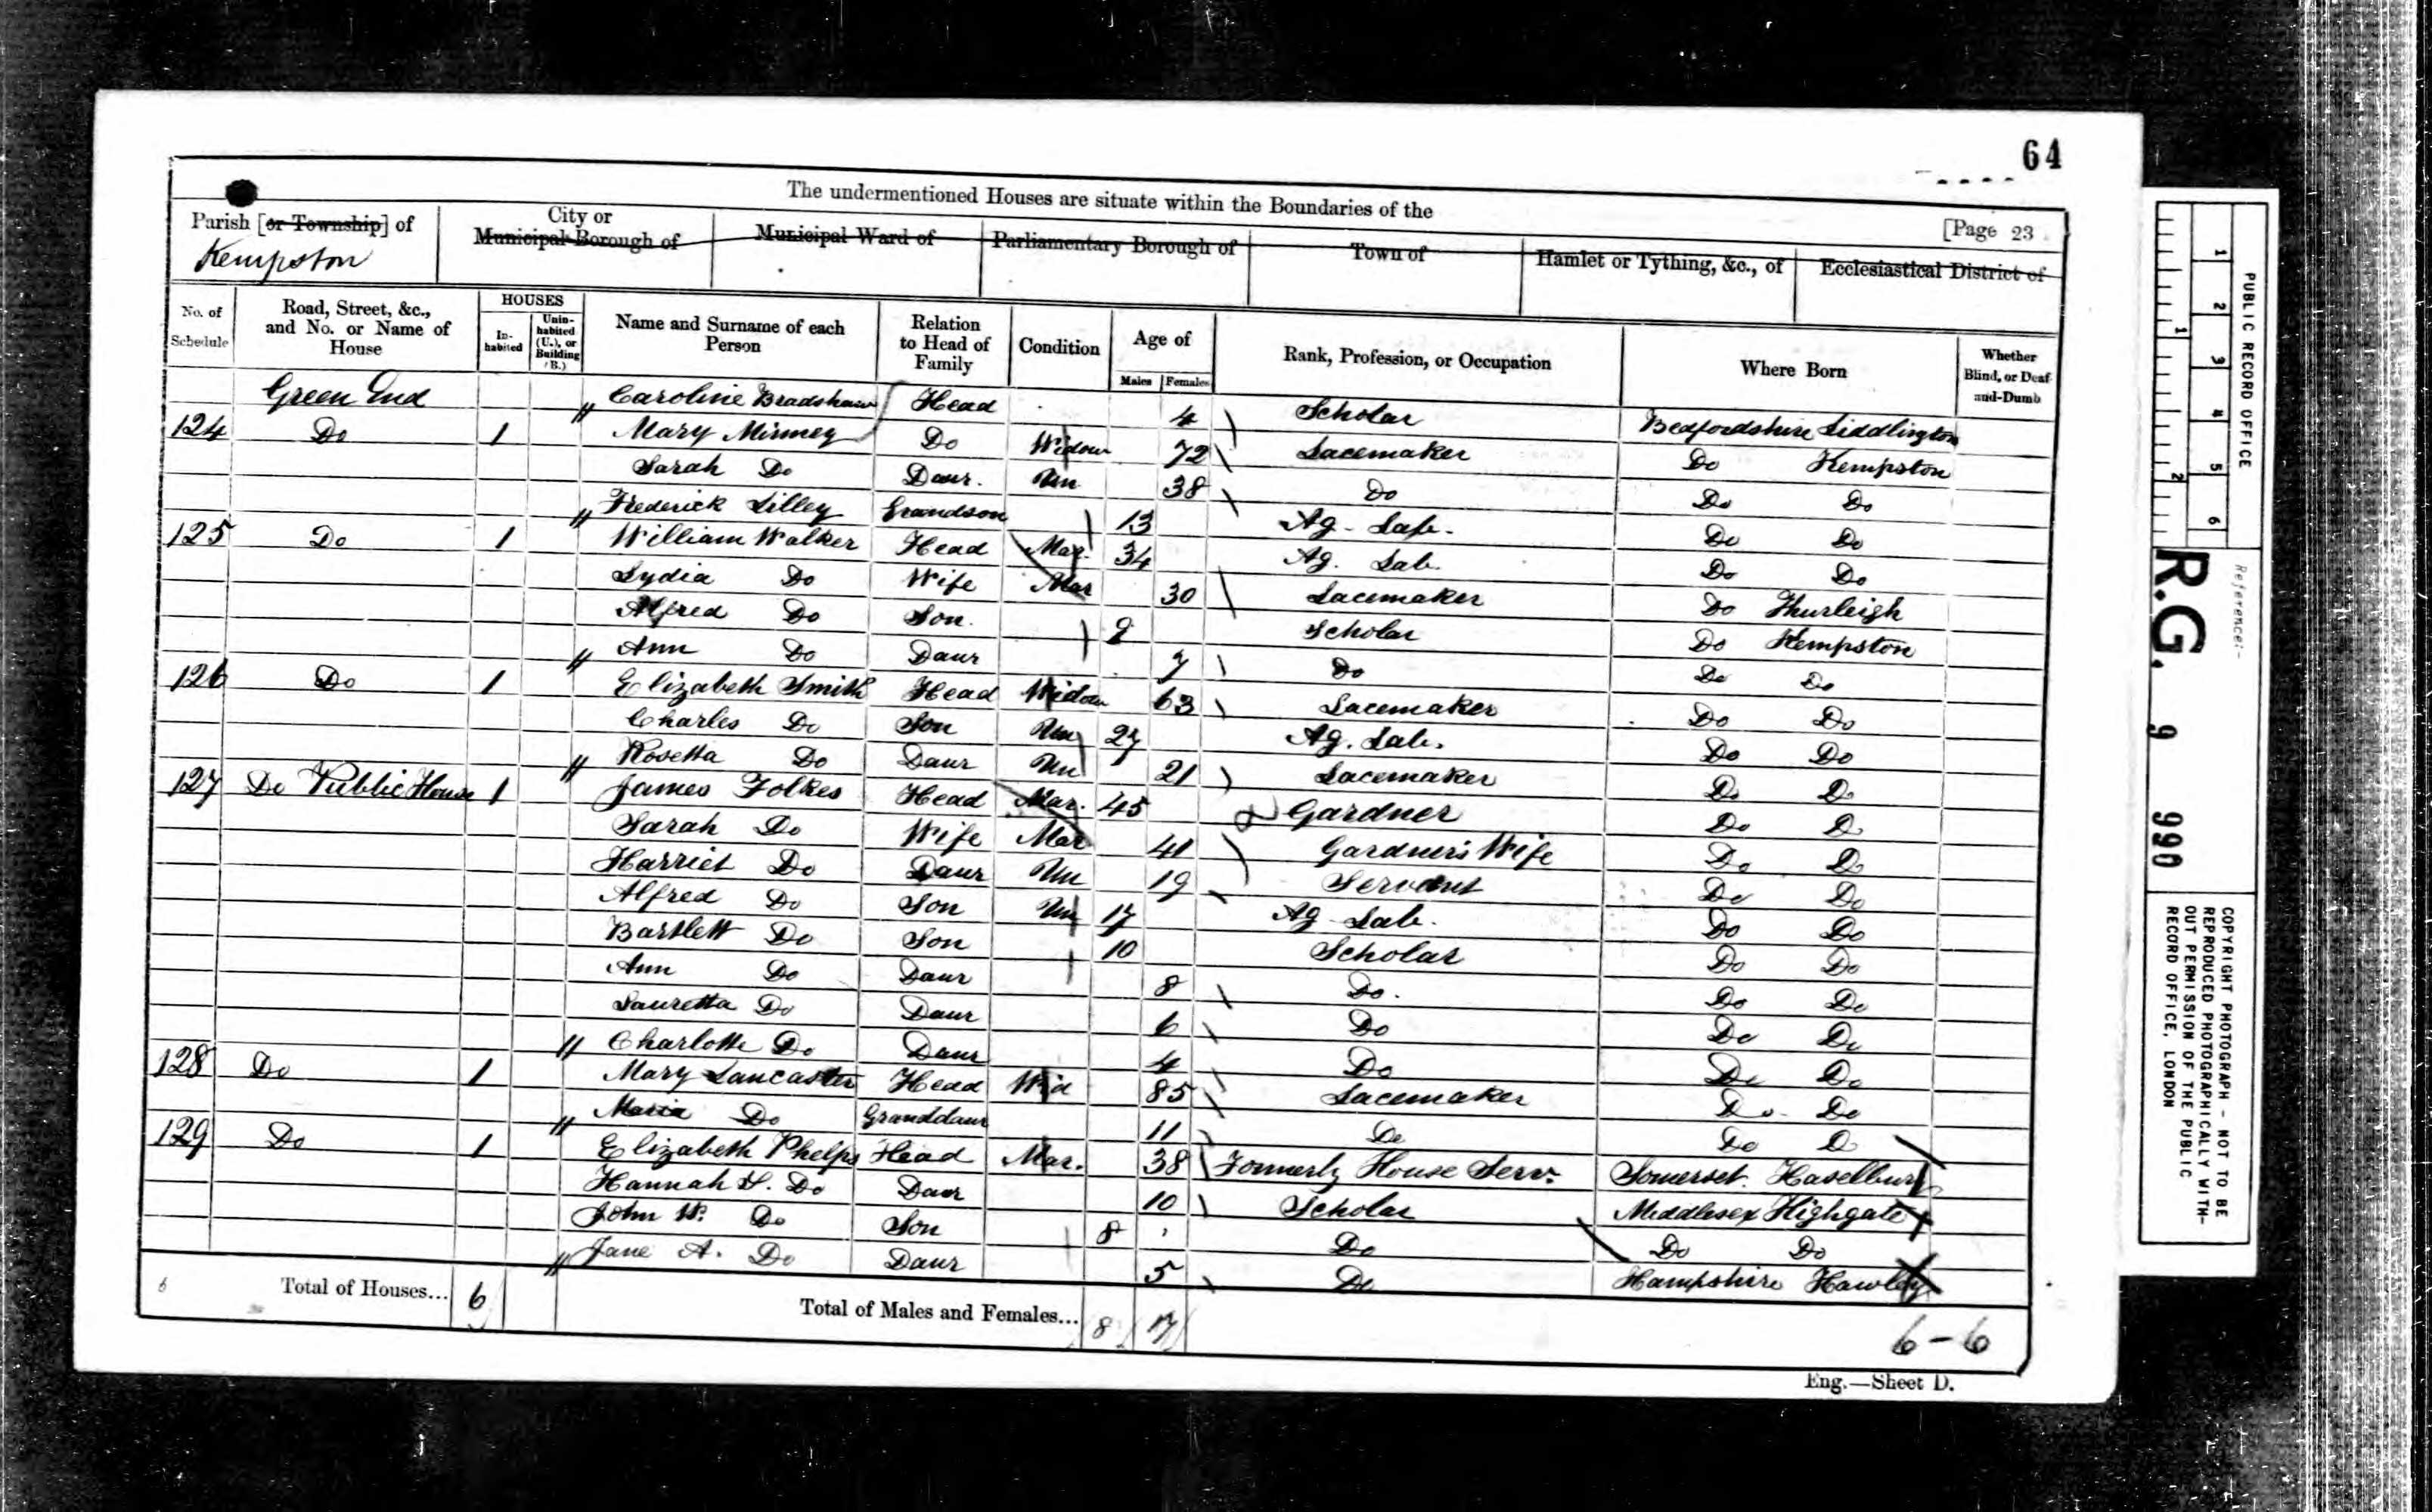 64
The undermentioned Houses are situate within the Boundaries of the
[Page 23
Parish [or Township] of
Kempston
City or
Municipal Borough of
Municipal Ward of
Parliamentary Borough of
Town of
Hamlet or Tything, &c., of
Ecclesiastical District of
No. of Schedule
Road, Street, &c., and No. or Name of House
HOUSES
In-habited
Unin-habited (U.), or Building (B.)
Name and Surname of each Person
Relation to Head of Family
Condition
Age of
Males Females
Rank, Profession, or Occupation
Where Born
Whether Blind, or Deaf-and-Dumb
Green End Caroline Bradshaw Head 4 Scholar Bedfordshire Liddlington
124 Do 1 Mary Minney Do Widow 72 Lacemaker Do Kempston
Sarah Do Daur. Un 38 Do Do Do
Frederick Lilley Grandson 13 Ag. Lab. Do Do
125 Do 1 William Walker Head Mar. 34 Ag. Lab. Do Do
Lydia Do Wife Mar 30 Lacemaker Do Thurleigh
Alfred Do Son. 9 Scholar Do Kempston
Ann Do Daur 7 Do Do Do
126 Do 1 Elizabeth Smith Head Widow 63 Lacemaker Do Do
Charles Do Son Un 27 Ag. Lab. Do Do
Rosetta Do Daur Un 21 Lacemaker Do Do
127 Do Public House 1 James Folkes Head Mar. 45 Gardner Do Do
Sarah Do Wife Mar 41 Gardner's Wife Do Do
Harriet Do Daur Un 19 Servant Do Do
Alfred Do Son Un 17 Ag. Lab. Do Do
Bartlett Do Son 10 Scholar Do Do
Ann Do Daur 8 Do. Do Do
Lauretta Do Daur 6 Do Do Do
Charlotte Do Daur 4 Do Do Do
128 Do 1 Mary Lancaster Head Wid 85 Lacemaker Do Do
Maria Do Granddaur 11 Do Do Do
129 Do 1 Elizabeth Phelps Head Mar. 38 Formerly House Serv. Somerset Haselbury
Hannah S. Do Daur 10 Scholar Middlesex Highgate
John W. Do Son 8 Do Do Do
Jane A. Do Daur 5 Do Hampshire Hawley
6 Total of Houses... 6 Total of Males and Females... 8 17
6-6
Eng.—Sheet D.
PUBLIC RECORD OFFICE
1 2 3 4 5 6
1 2
Reference:-
R.G. 9 990
COPYRIGHT PHOTOGRAPH - NOT TO BE
REPRODUCED PHOTOGRAPHICALLY WITH-
OUT PERMISSION OF THE PUBLIC
RECORD OFFICE, LONDON